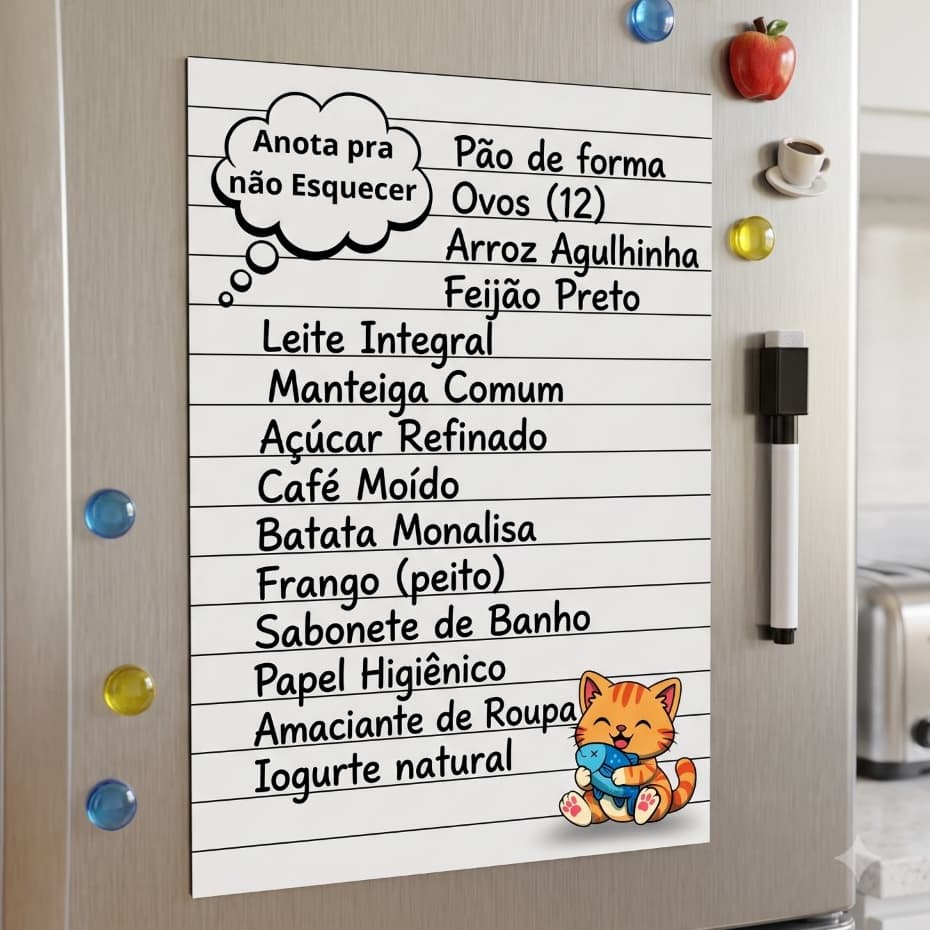 Anota pra
não Esquecer
Pão de forma
Ovos (12)
Arroz Agulhinha
Feijão Preto
Leite Integral
Manteiga Comum
Açúcar Refinado
Café Moído
Batata Monalisa
Frango (peito)
Sabonete de Banho
Papel Higiênico
Amaciante de Roupa
Iogurte natural